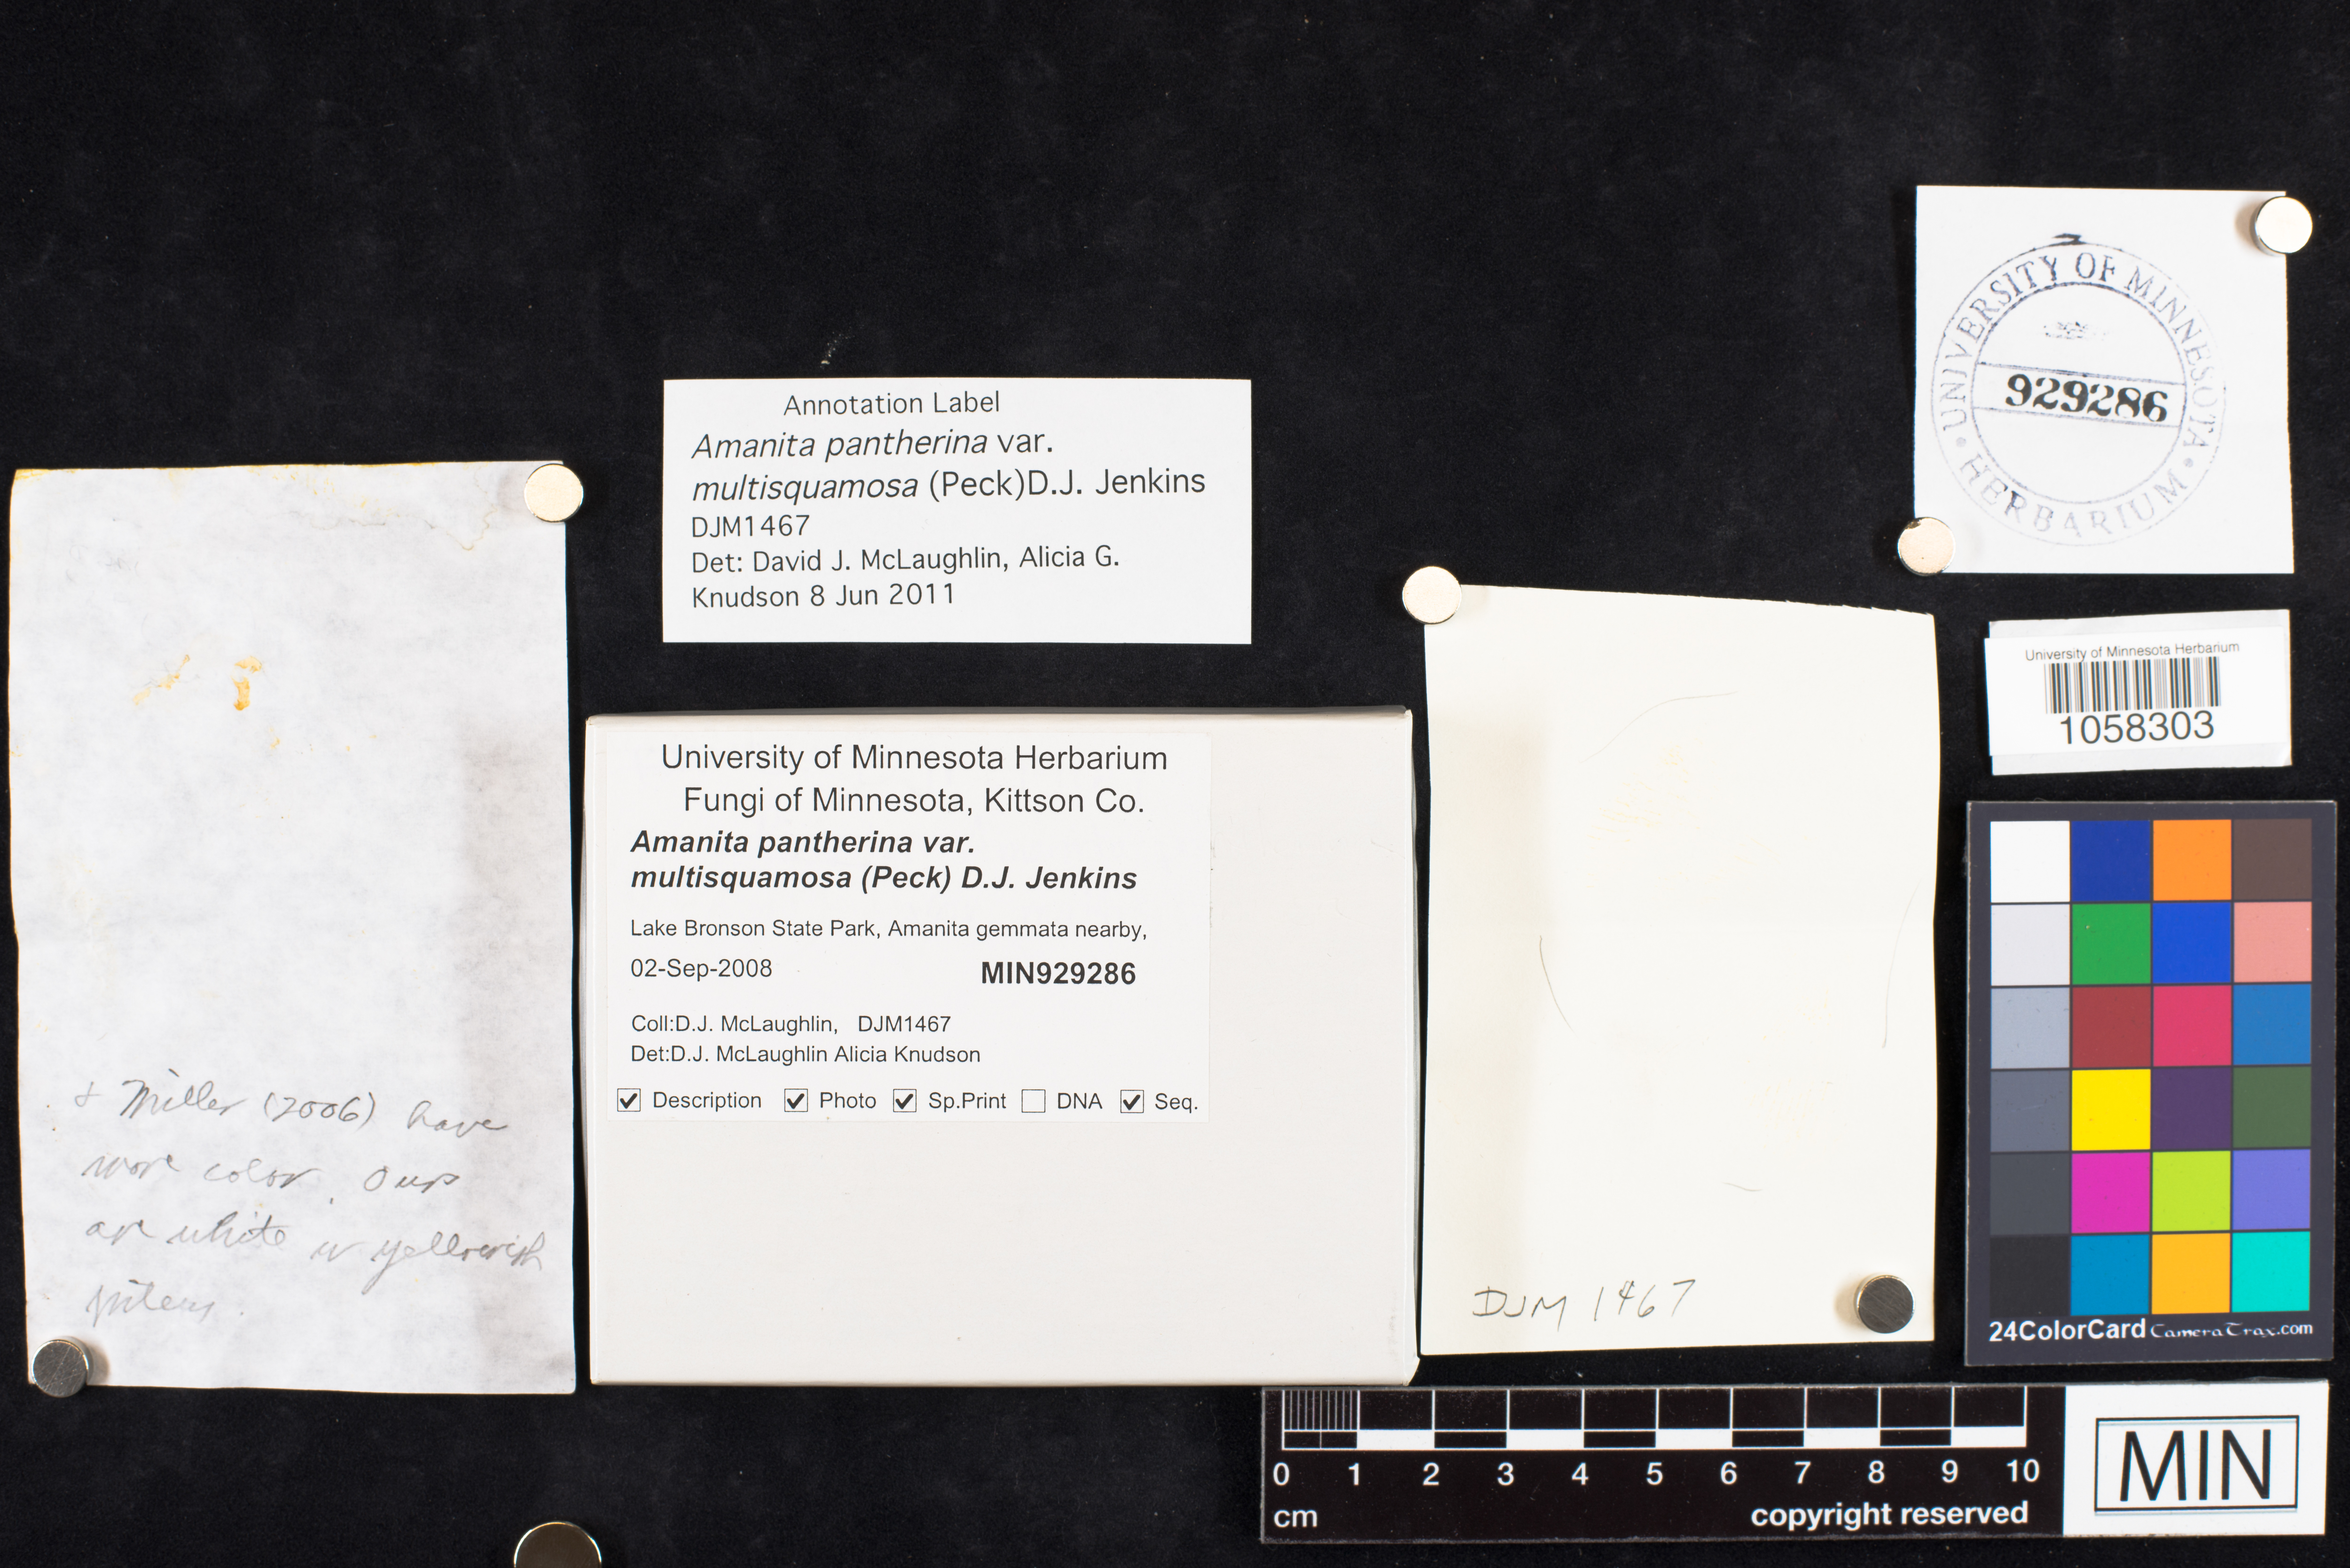 Annotation Label
Amanita pantherina var.
multisquamosa (Peck)D.J. Jenkins
DJM1467
Det: David J. McLaughlin, Alicia G.
Knudson 8 Jun 2011
& Miller (2006) have
more color. Ours
are white w yellowish
pileus.
University of Minnesota Herbarium
Fungi of Minnesota, Kittson Co.
Amanita pantherina var.
multisquamosa (Peck) D.J. Jenkins
Lake Bronson State Park, Amanita gemmata nearby,
02-Sep-2008 MIN929286
Coll:D.J. McLaughlin, DJM1467
Det:D.J. McLaughlin Alicia Knudson
Description Photo Sp.Print DNA Seq.
DJM 1467
UNIVERSITY OF MINNESOTA
929286
HERBARIUM
University of Minnesota Herbarium
1058303
24ColorCard CameraTrax.com
0 1 2 3 4 5 6 7 8 9 10
cm copyright reserved
MIN